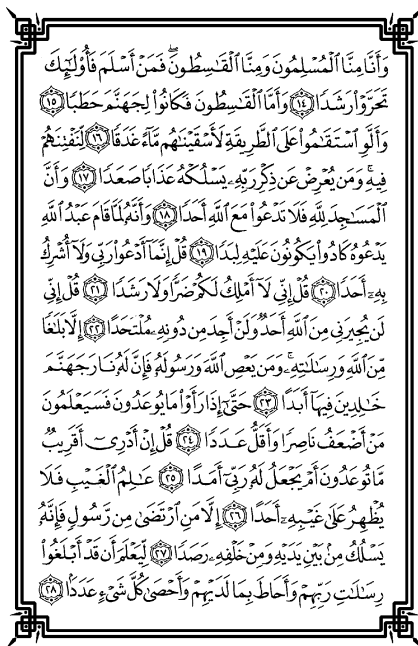 وَأَنَّا مِنَّا ٱلْمُسْلِمُونَ وَمِنَّا ٱلْقَٰسِطُونَ ۖ فَمَنْ أَسْلَمَ فَأُو۟لَٰٓئِكَ
تَحَرَّوْا۟ رَشَدًا ١٤ وَأَمَّا ٱلْقَٰسِطُونَ فَكَانُوا۟ لِجَهَنَّمَ حَطَبًا ١٥
وَأَلَّوِ ٱسْتَقَٰمُوا۟ عَلَى ٱلطَّرِيقَةِ لَأَسْقَيْنَٰهُم مَّآءً غَدَقًا ١٦ لِّنَفْتِنَهُمْ
فِيهِ ۚ وَمَن يُعْرِضْ عَن ذِكْرِ رَبِّهِۦ يَسْلُكْهُ عَذَابًا صَعَدًا ١٧ وَأَنَّ
ٱلْمَسَٰجِدَ لِلَّهِ فَلَا تَدْعُوا۟ مَعَ ٱللَّهِ أَحَدًا ١٨ وَأَنَّهُۥ لَمَّا قَامَ عَبْدُ ٱللَّهِ
يَدْعُوهُ كَادُوا۟ يَكُونُونَ عَلَيْهِ لِبَدًا ١٩ قُلْ إِنَّمَآ أَدْعُوا۟ رَبِّى وَلَآ أُشْرِكُ
بِهِۦٓ أَحَدًا ٢٠ قُلْ إِنِّى لَآ أَمْلِكُ لَكُمْ ضَرًّا وَلَا رَشَدًا ٢١ قُلْ إِنِّى
لَن يُجِيرَنِى مِنَ ٱللَّهِ أَحَدٌ وَلَنْ أَجِدَ مِن دُونِهِۦ مُلْتَحَدًا ٢٢ إِلَّا بَلَٰغًا
مِّنَ ٱللَّهِ وَرِسَٰلَٰتِهِۦ ۚ وَمَن يَعْصِ ٱللَّهَ وَرَسُولَهُۥ فَإِنَّ لَهُۥ نَارَ جَهَنَّمَ
خَٰلِدِينَ فِيهَآ أَبَدًا ٢٣ حَتَّىٰٓ إِذَا رَأَوْا۟ مَا يُوعَدُونَ فَسَيَعْلَمُونَ
مَنْ أَضْعَفُ نَاصِرًا وَأَقَلُّ عَدَدًا ٢٤ قُلْ إِنْ أَدْرِىٓ أَقَرِيبٌ
مَّا تُوعَدُونَ أَمْ يَجْعَلُ لَهُۥ رَبِّىٓ أَمَدًا ٢٥ عَٰلِمُ ٱلْغَيْبِ فَلَا
يُظْهِرُ عَلَىٰ غَيْبِهِۦٓ أَحَدًا ٢٦ إِلَّا مَنِ ٱرْتَضَىٰ مِن رَّسُولٍ فَإِنَّهُۥ
يَسْلُكُ مِنۢ بَيْنِ يَدَيْهِ وَمِنْ خَلْفِهِۦ رَصَدًا ٢٧ لِّيَعْلَمَ أَن قَدْ أَبْلَغُوا۟
رِسَٰلَٰتِ رَبِّهِمْ وَأَحَاطَ بِمَا لَدَيْهِمْ وَأَحْصَىٰ كُلَّ شَىْءٍ عَدَدًۢا ٢٨